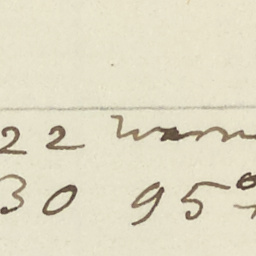 22 Warm
30 95°